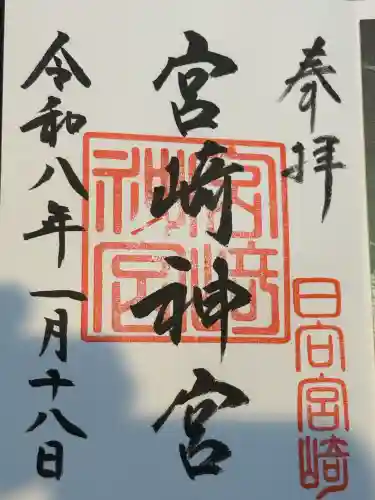 奉拝
日向宮崎
宮崎神宮
宮崎
神宮
令和八年一月十八日